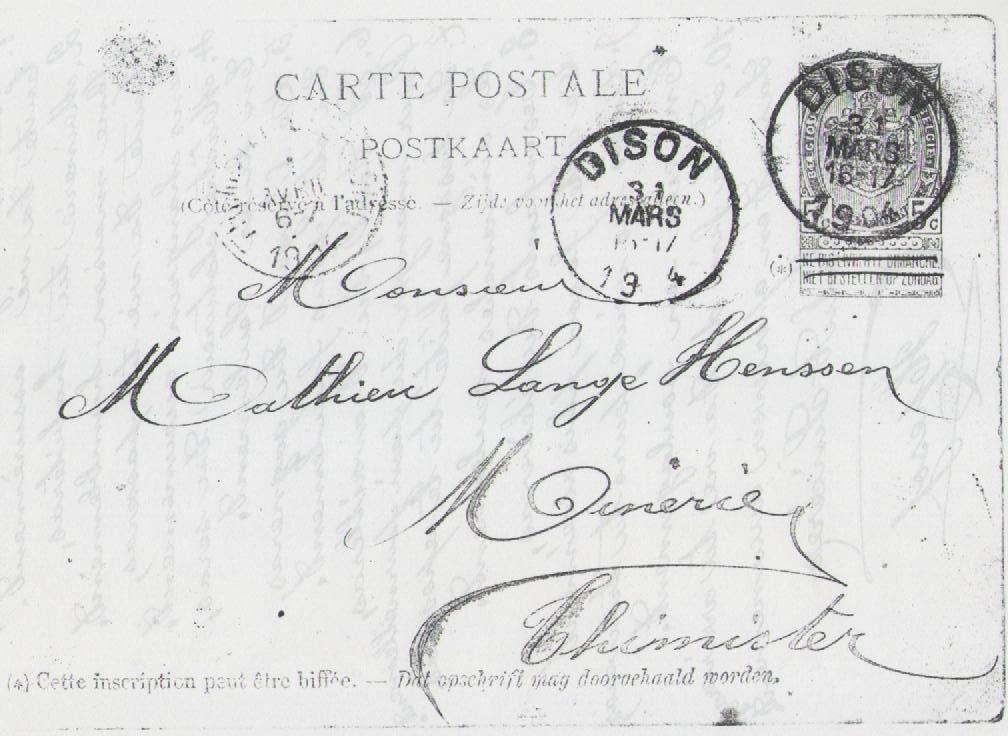 CARTE POSTALE
POSTKAART
DISON
31
MARS
16-17
1904
DISON
31
MARS
19 4
AVRIL
6-
19
(Côté réservé à l'adresse. — Zijde voor het adres alleen.)
5 c 5 c
(*) NE PAS LIVRER LE DIMANCHE.
NIET BESTELLEN OP ZONDAG.
Monsieur
Mathieu Lange Henssen
Minerie
Thimister
(*) Cette inscription peut être biffée. — Dat opschrift mag doorgehaald worden.